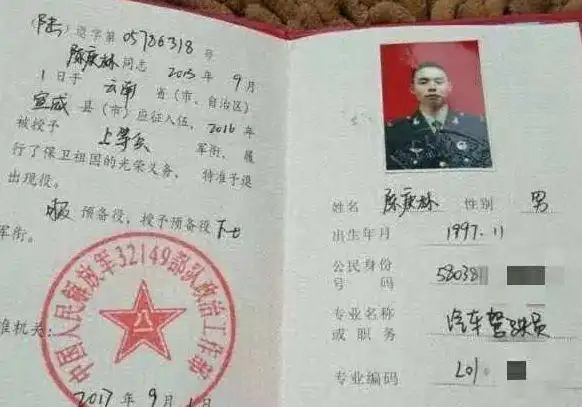 （陆）退字第05786318号
陈庆林同志 2015年9月
1日于云南省（市、自治区）
宣威县（市）应征入伍，2016年
被授予上等兵军衔，履
行了保卫祖国的光荣义务，特准予退
出现役。
服预备役，授予预备役下士
军衔。
准机关：
中国人民解放军32149部队政治工作部
八一
2017年9月1日
姓名 陈庆林 性别 男
出生年月 1997.11
公民身份
号码 53038
专业名称
或职务 汽车驾驶员
专业编码 201